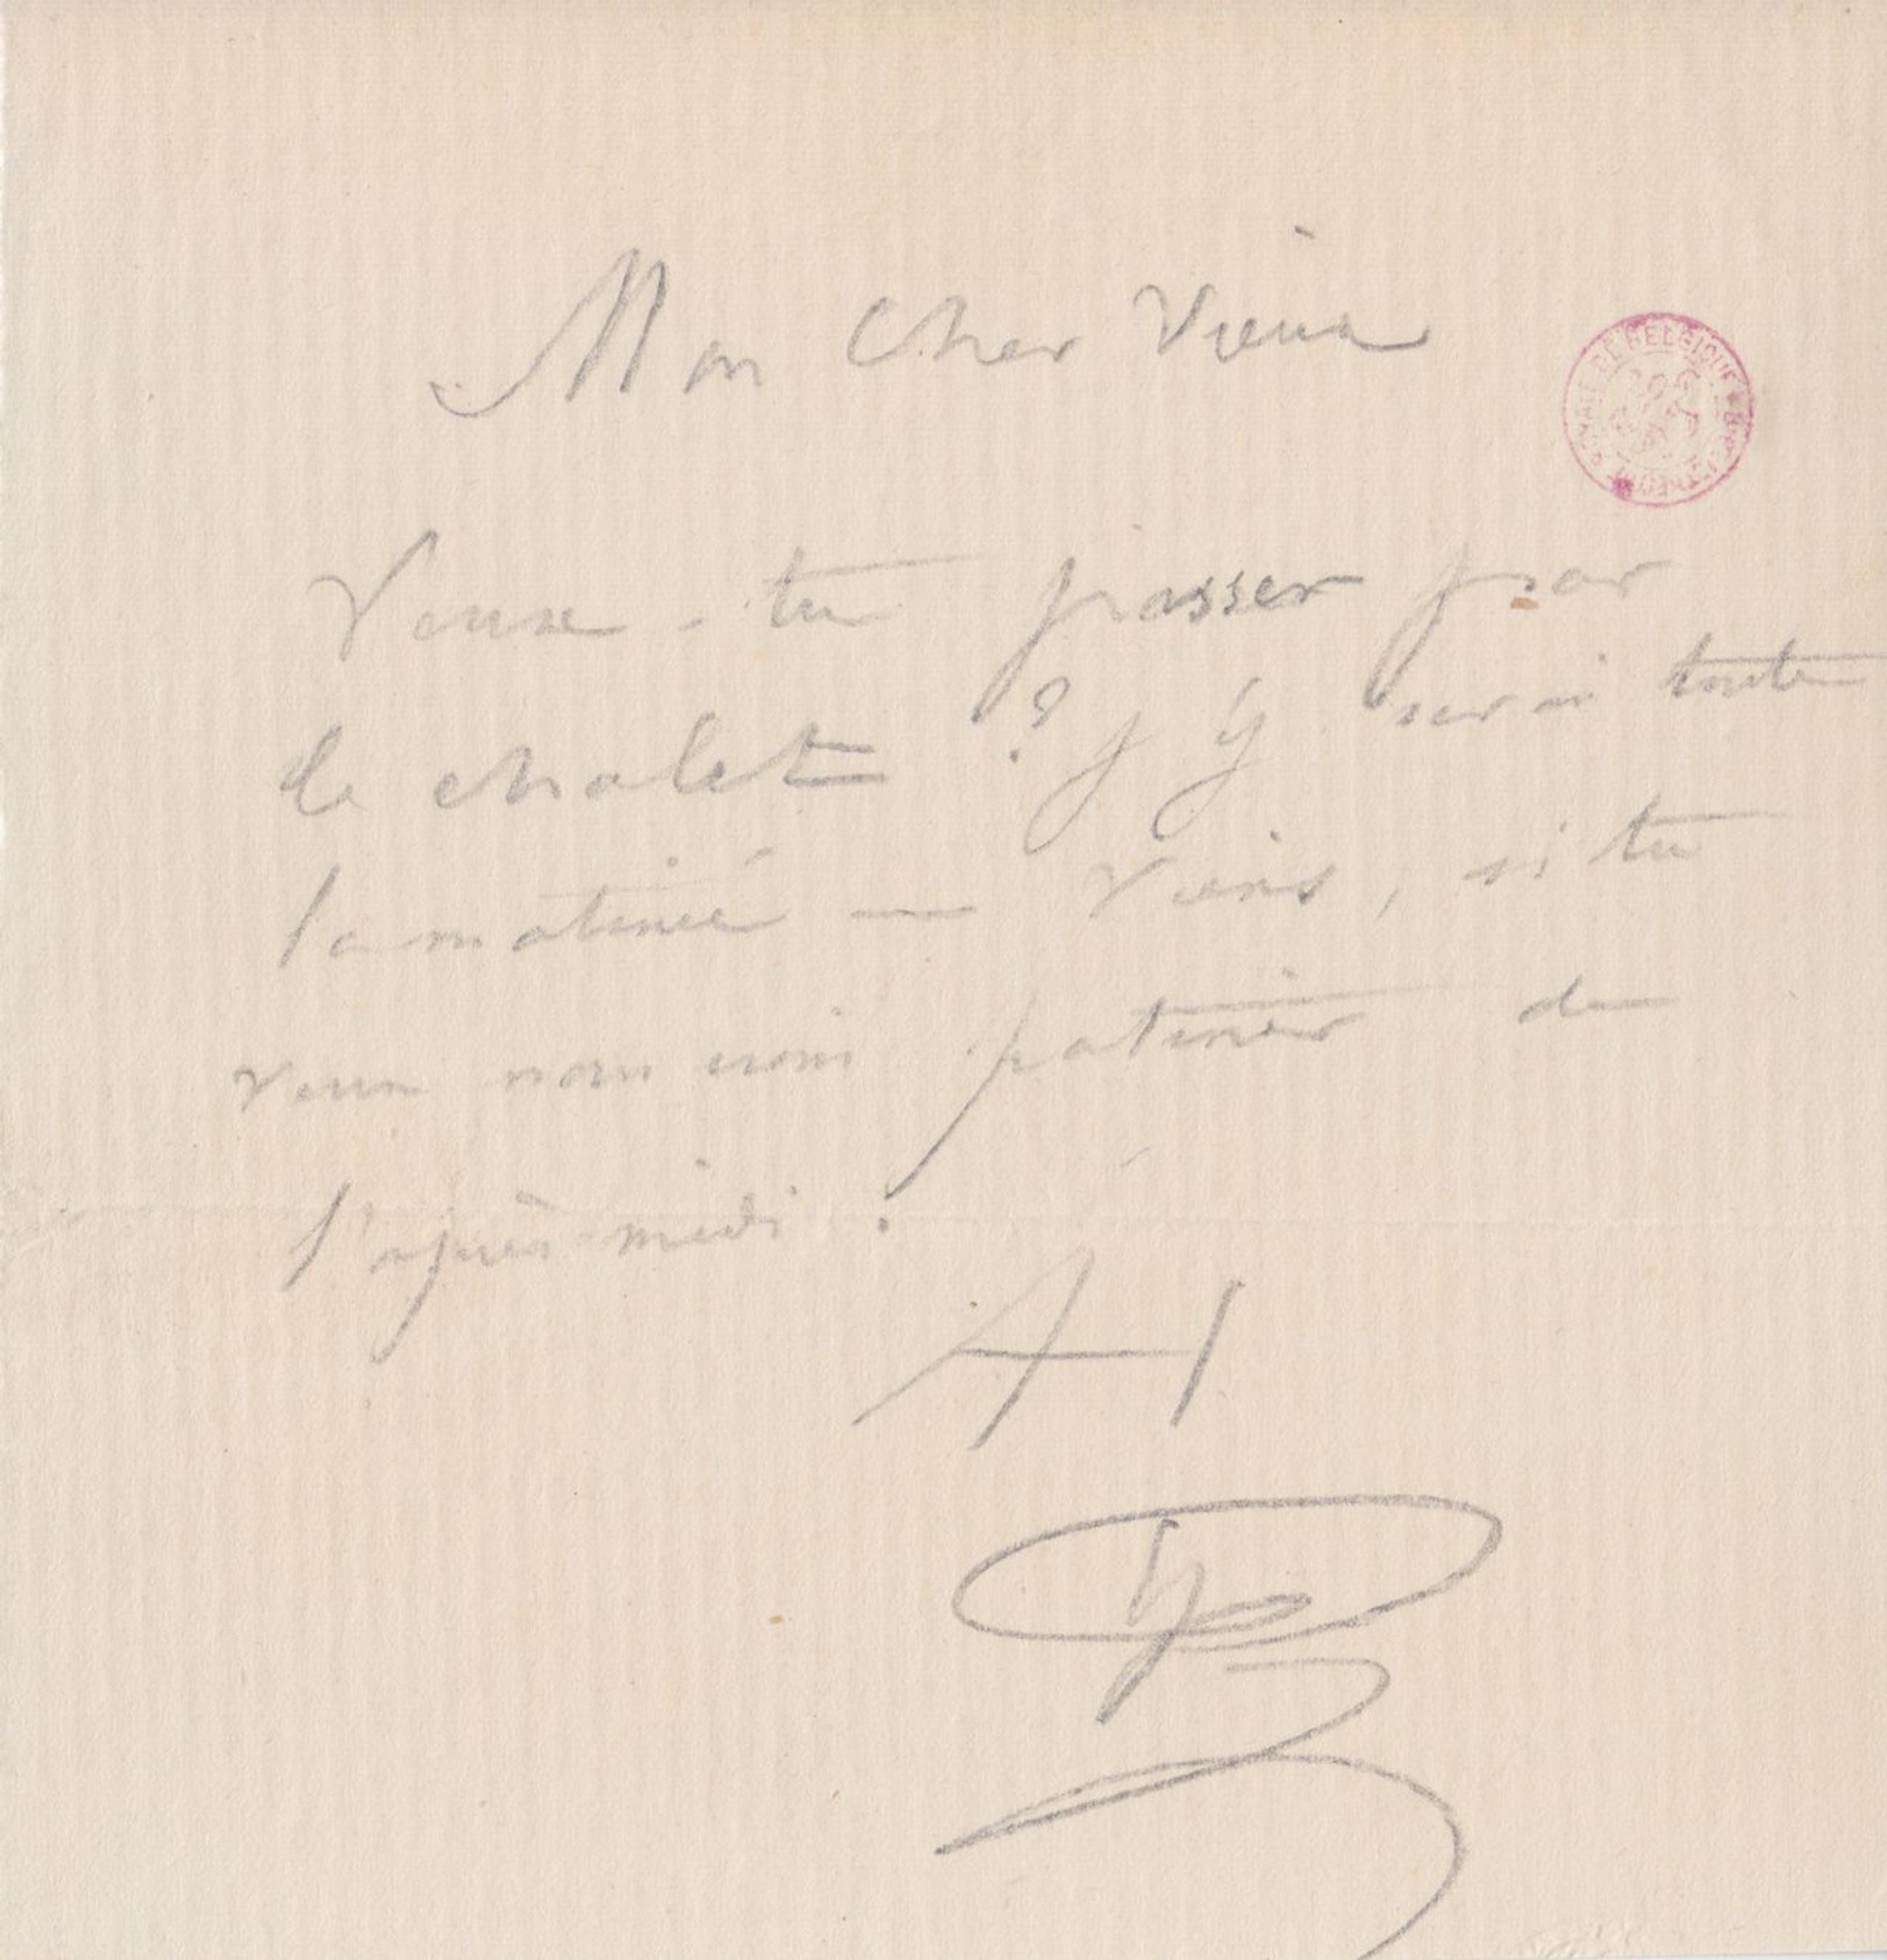 Mon cher Vieux
Veux-tu passer par
le chalet ? J'y serai toute
la matinée — Viens, si tu
veux nous irons patiner de
l'après-midi.
AH
DE BELGIQUE